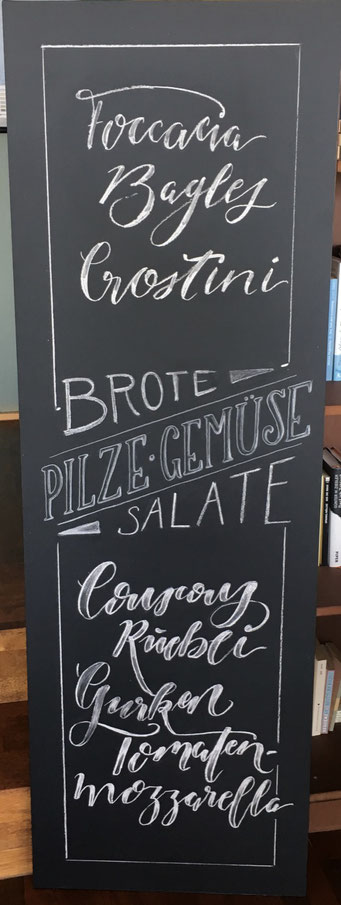 Foccacia
Bagles
Crostini
BROTE
PILZE·GEMÜSE
SALATE
Couscous
Rüebli
Gurken
Tomaten-
mozzarella